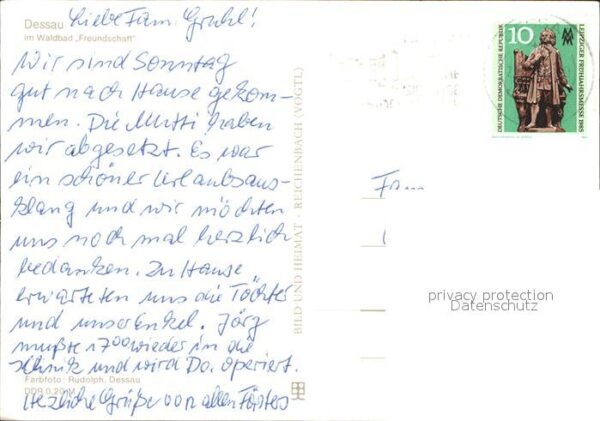 Liebe Fam. Gruhl!
Dessau
im Waldbad „Freundschaft"
Wir sind Sonntag
gut nach Hause gekom-
men. Die Mutti haben
wir abgesetzt. Es war
ein schöner Urlaubsaus-
klang und wir möchten
uns noch mal herzlich
bedanken. Zu Hause
erwarteten uns die Töchter
und unser Enkel. Jörg
mußte 17⁰⁰ wieder in die
Klinik und wird Do. operiert.
Farbfoto: Rudolph, Dessau
DDR 0,20 M
Herzliche Grüße von allen Försters
BILD UND HEIMAT · REICHENBACH (VOGTL)
10
DEUTSCHE DEMOKRATISCHE REPUBLIK
LEIPZIGER FRÜHJAHRSMESSE 1985
Fam
privacy protection
Datenschutz